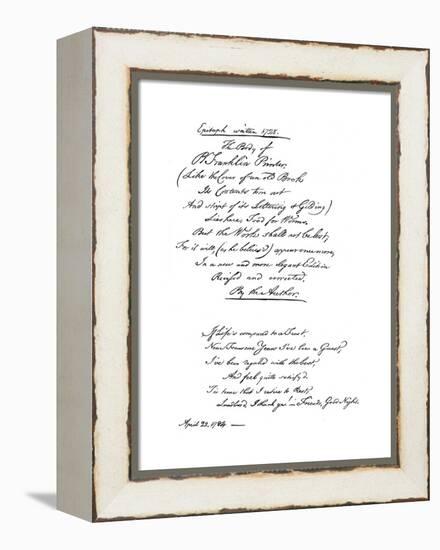 Epitaph written 1728.
The Body of
B. Franklin Printer,
(Like the Cover of an old Book
Its Contents torn out
And stript of its Lettering & Gilding)
Lies here, Food for Worms.
But the Work shall not be lost;
For it will, (as he believ'd) appear once more,
In a new and more elegant Edition
Revised and corrected.
By the Author.
If Life's compared to a Feast,
Near Fourscore Years I've been a Guest,
I've been regaled with the best,
And feel quite satisfyd.
'Tis time that I retire to Rest;
Landlord, I thank ye! in Friends, Good Night.
April 22, 1784 —